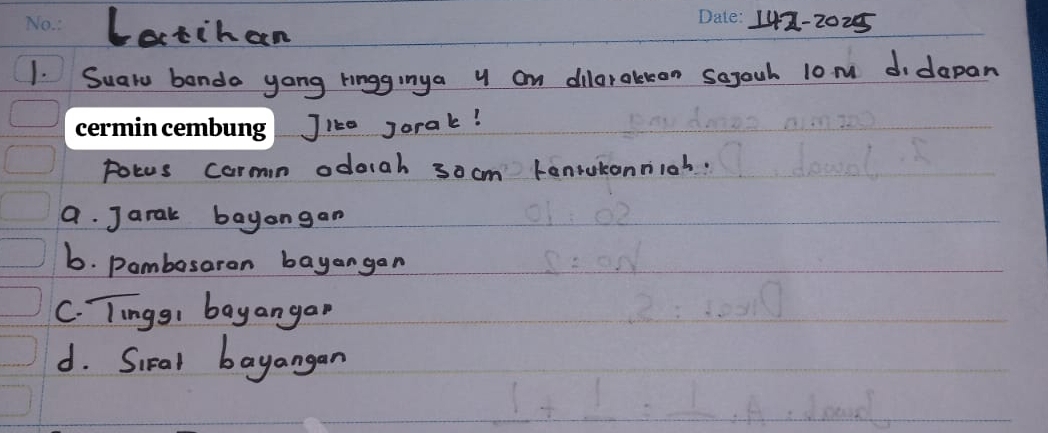 No.: Latihan Date: 141-2025
1. Suatu benda yang tingginya 4 cm diletakkan sejauh 10 m didepan
cermin cembung Jika jarak!
Fokus cermin adalah 30cm tentukannilah:
a. Jarak bayangan
b. pembesaran bayangan
C. Tinggi bayangan
d. Sifat bayangan